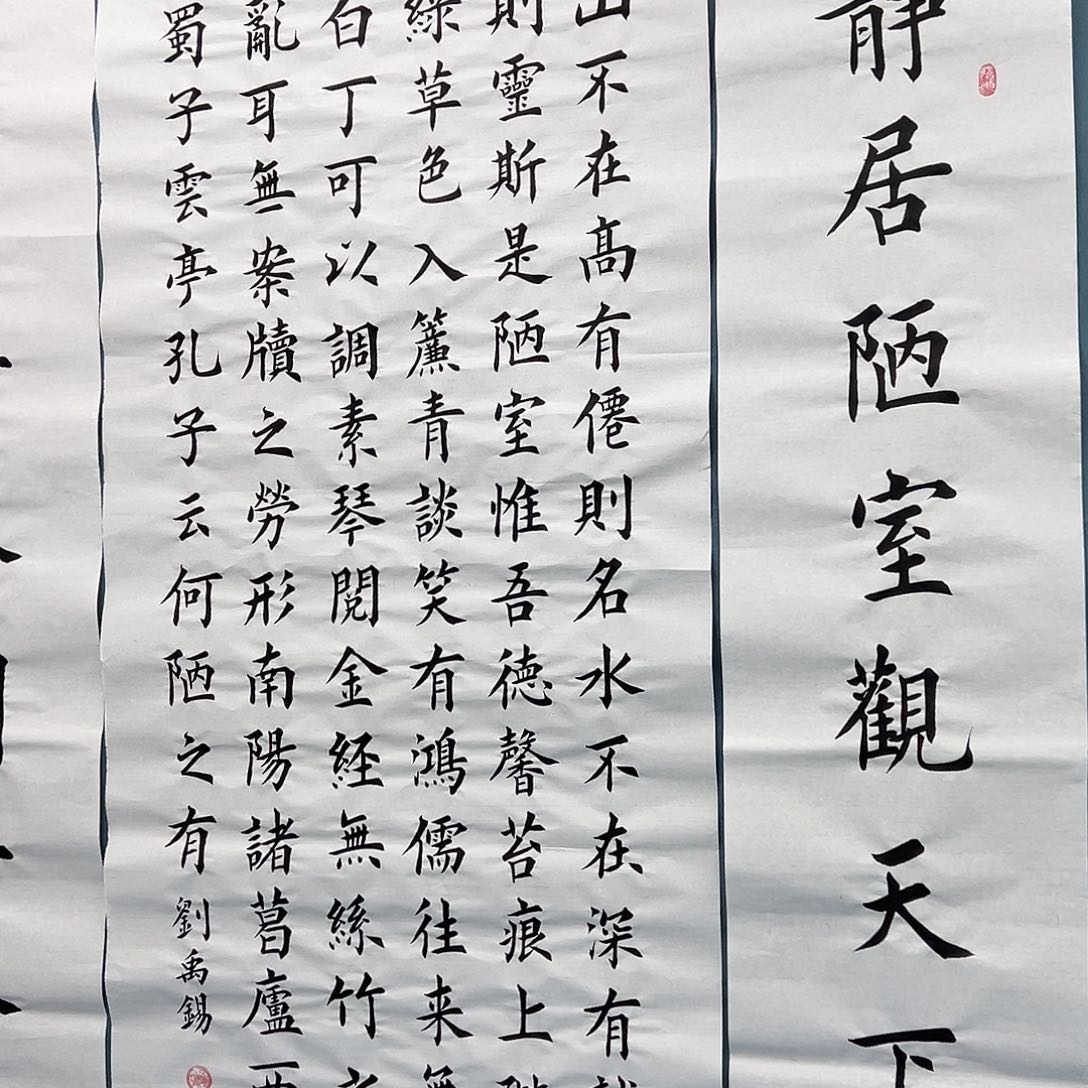 靜居陋室觀天下
山不在高有僊則名水不在深有
則靈斯是陋室惟吾德馨苔痕上
綠草色入簾青談笑有鴻儒往来無
白丁可以調素琴閱金経無絲竹
亂耳無案牘之勞形南陽諸葛廬西
蜀子雲亭孔子云何陋之有
劉禹錫